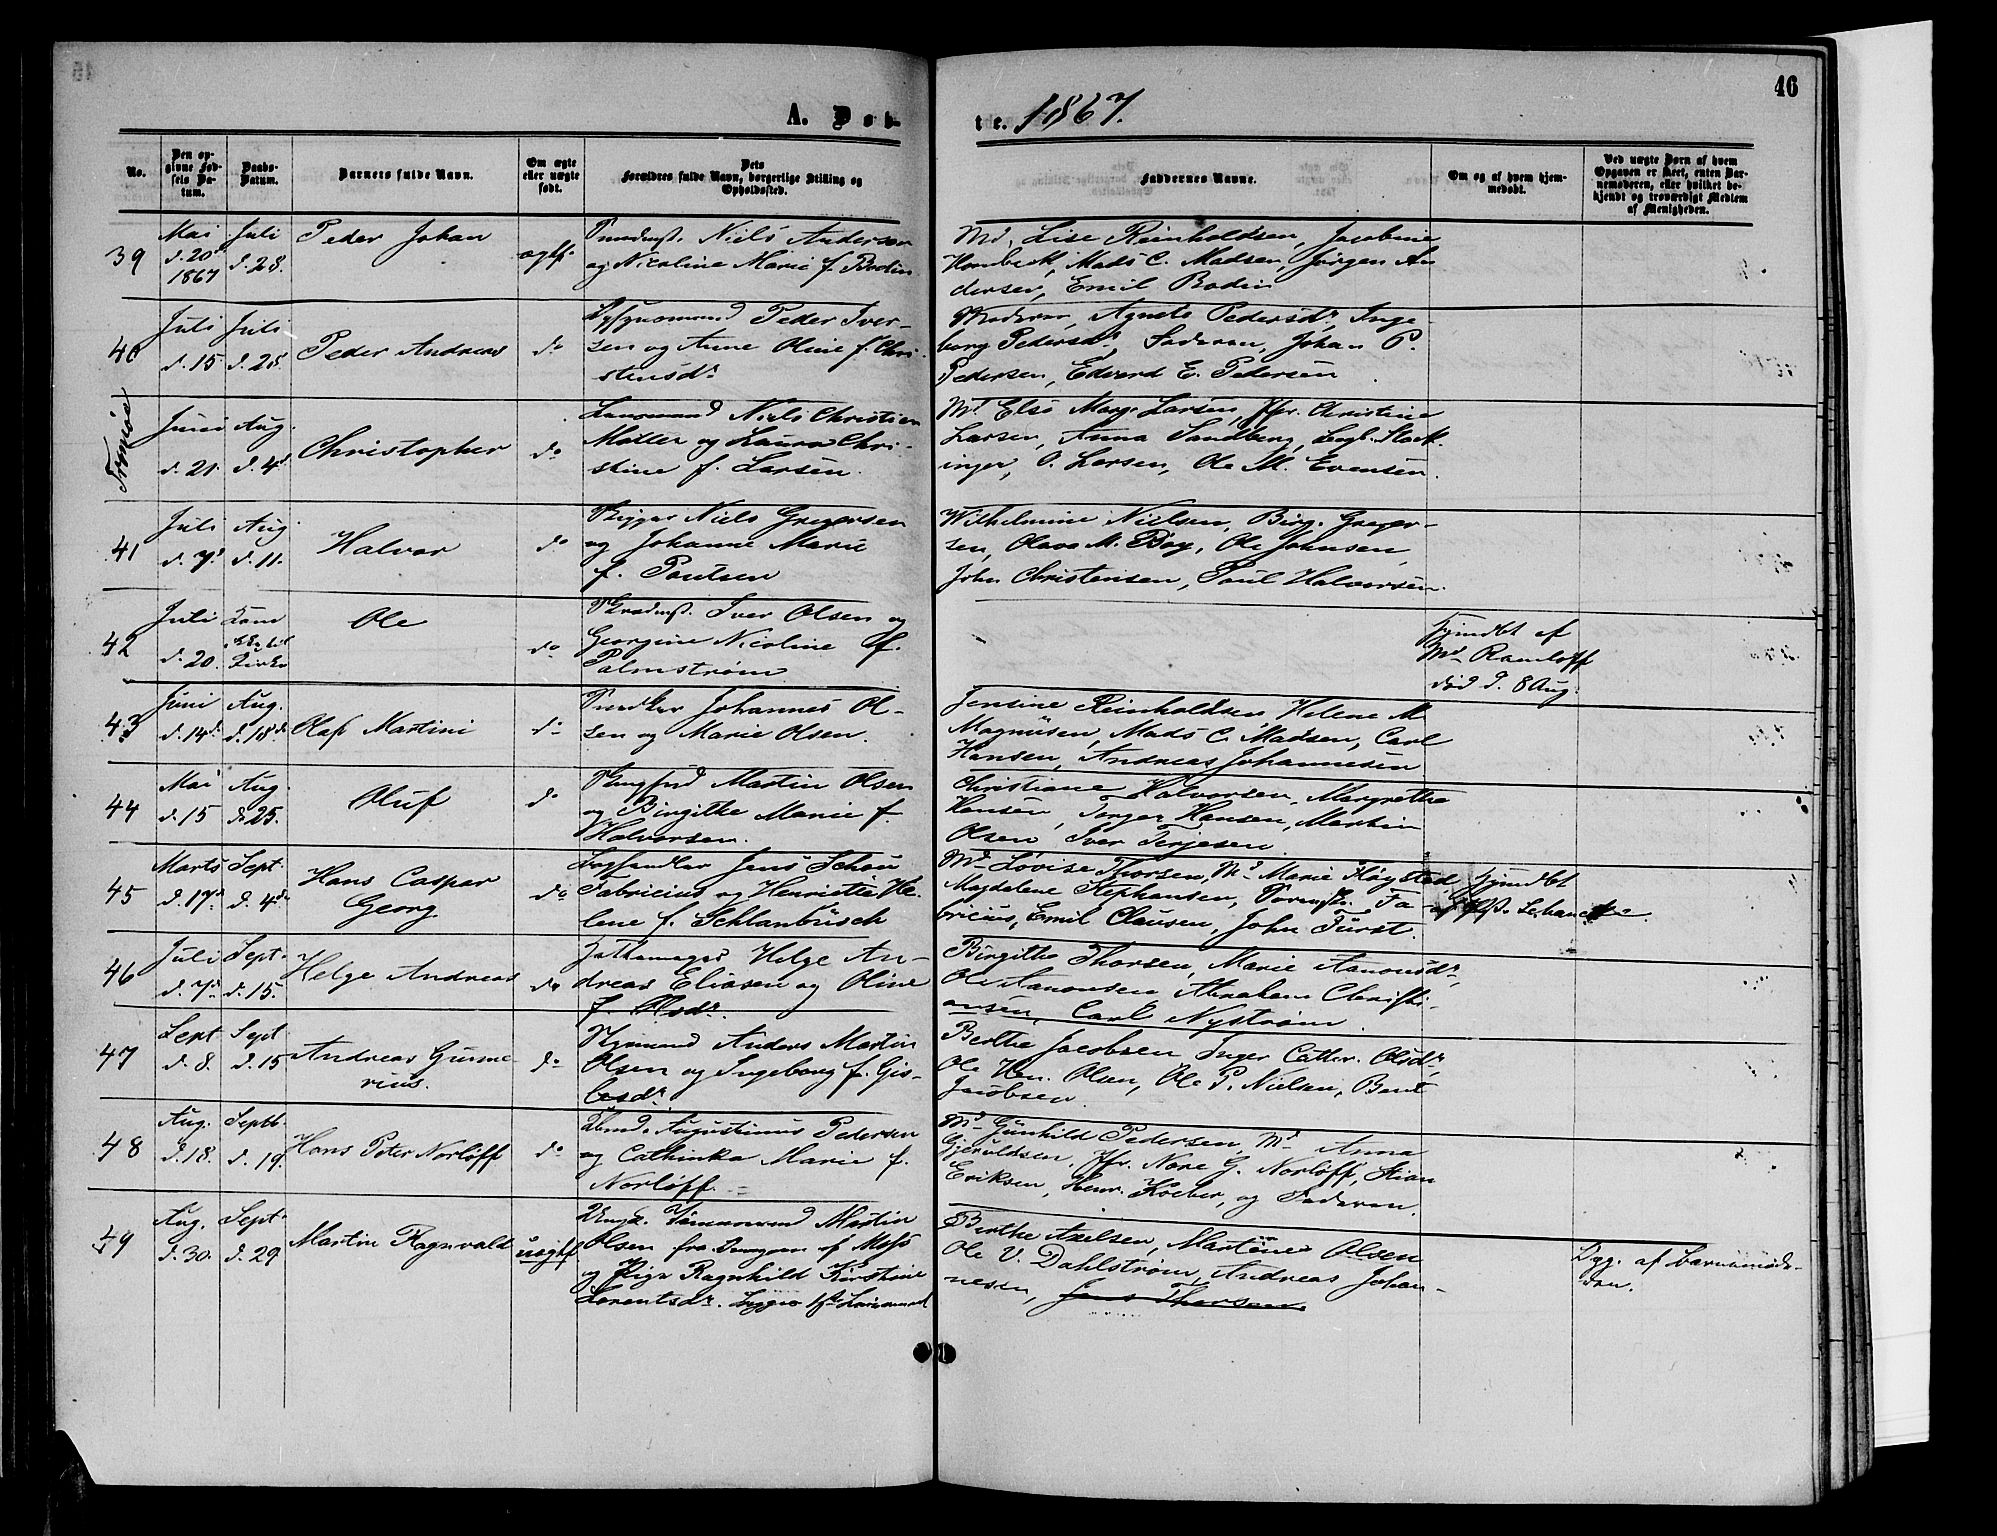 46
A. Døb-
te. 1867.
No.
Den op-
givne Fød-
sels Da-
tum.
Daabs-
Datum.
Barnets fulde Navn.
Om ægte
eller uægte
født.
Dets
Forældres fulde Navn, borgerlige Stilling og
Opholdssted.
Faddernes Navne.
Om og af hvem hjem-
medøbt.
Ved uægte Børn af hvem
Opgaven er skeet, enten Bar-
nemoderen, eller hvilket be-
kjendt og troværdigt Medlem
af Menigheden.
39
Mai
d. 20
1867
Juli
d. 28.
Peder Johan
ægtf.
Niels Andersen
og Nicoline Marie f. Bodin
Md. Lise Reinholdsen, Jacobine
Mads C. Madsen, Jørgen An
dersen, Emil Bodin
40
Juli
d. 15
Juli
d. 28.
Peder Andreas
do
Peder Iver-
sen og Anne Oline f. Chri-
stensdr.
Moderen, Agnete Pedersdr., Inge-
borg Pedersdr., Faderen, Johan P.
Pedersen, Edvard E. Pedersen
Tromsø
Juni
d. 21.
Aug.
d. 4d
Christopher
do
Niels Christian
Møller og Laura Chri-
stine f. Larsen.
Md. Else Marg. Larsen, Jfr. Christine
Larsen, Anna Sandberg, Engl. Stock-
inger, O. Larsen, Ole M. Evensen.
41
Juli
d. 7d
Aug.
d. 11.
Halvor
do
Rigger Niels Gregersen
og Johanne Marie
f. Poulsen
Wilhelmine Nielsen, Birg. Greger-
sen, Olava M. Bay, Ole Johnsen,
John Christensen, Poul Halvorsen.
42
Juli
d. 20.
Kom
ikke til
Kirke
Ole
do
Iver Olsen og
Georgine Nicoline f.
Palmstrøm
hjmdbt af
Md. Ramløff
død d. 8 Aug.
43
Juni
d. 14d
Aug.
d. 18d
Olaf Martini
do
Snedker Johannes Ol-
sen og Marie Olsen.
Jensine Reinholdsen, Helene M
Magnusen, Mads C. Madsen, Carl
Hansen, Andreas Johannesen
44
Mai
d. 15
Aug.
d. 25.
Oluf
do
Martin Olsen
og Birgitte Marie f.
Halvorsen.
Christiane Halvorsen, Margrethe
Hansen, Torger Hansen, Martin
Olsen, Iver Terjesen.
45
Marts
d. 17d
Sept.
d. 4d
Hans Caspar
Georg
do
Boghandler Jens Schou
Fabricius og Henriette He-
lene f. Schlanbusch
Md. Lovise Thorsen, Md. Marie Høysted,
Magdalene Stephansen, Fa-
bricius, Emil Clausen, John Fürst.
hjmdbt
46
Juli
d. 7d
Sept.
d. 15.
Helge Andreas
do
Helge An-
dreas Eliasen og Oline
f. Olsdr.
Birgitte Thorsen, Marie Aanonsdr.,
Ole Aanonsen, Abraham Christi-
ansen, Carl Nystrøm.
47
Sept
d. 8.
Sept
d. 15
Andreas Gunne-
rius.
do
Anders Martin
Olsen og Ingeborg f. Gis-
lesdr.
Berthe Jacobsen, Inger Cathr. Olsdr.,
Ole Hen. Olsen, Ole P. Nielsen, Bent
Jacobsen.
48
Aug.
d. 18.
Septb.
d. 19.
Hans Peter Norløff
do
Augustinus Pedersen
og Cathinka Marie f.
Norløff.
Md. Gunhild Pedersen, Md. Anna
Gjeruldsen, Jfr. Nore G. Norløff, Stian
Eriksen, Henr. Koeber, og Faderen.
49
Aug.
d. 30.
Sept.
d. 29
Martin Ragnvald
uægtf
Ungk. Sømand Martin
Olsen fra af Moss
og Pige Ragnhild Kirstine
Lorentsdr.
Berthe Axelsen, Martine Olsen
Ole V. Dahlstrøm, Andreas Johan-
nesen, Jens Thorsen.
Opg. af barnemode-
ren.